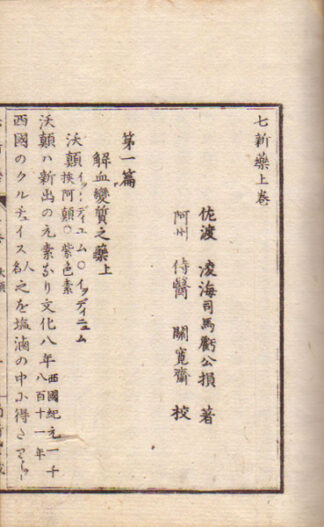 七新藥上卷
佐渡 凌海司馬虧公損 著
阿州 侍醫 關寛齋 校
第一篇
解血變質之藥上
沃顛イッーディユム〇イッディニュム
挨阿顛〇紫色素
沃顛ハ新出の元素なり文化八年西國紀元一千八百十一年
西國のクルチュイス人名之を塩滷の中小得さり